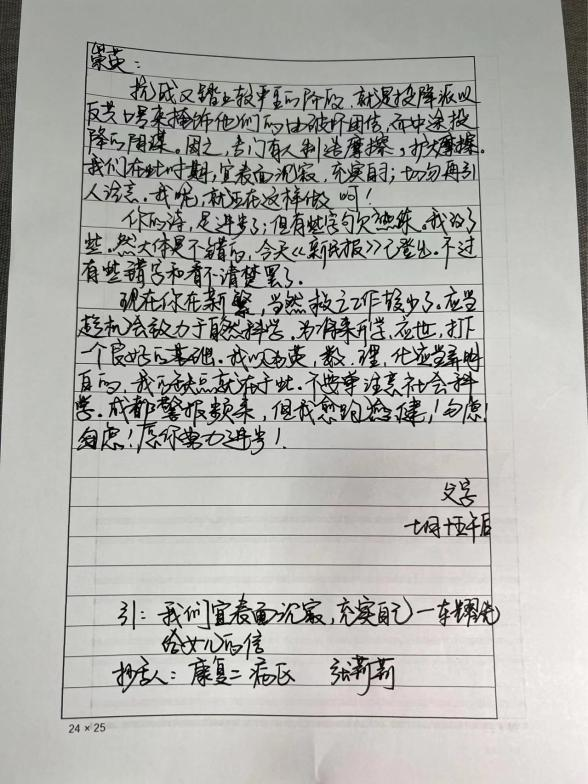 崇英：
抗战又踏上较严重的阶段，就是投降派以
反共口号来掩饰他们的由破坏团结，而中途投
降的阴谋。因之，专门有人制造摩擦，扩大摩擦。
我们在此时期，宜表面沉寂，充实自己；切勿再引
人注意。我呢，就正在这样做呵！
你的诗，是进步了；但有些字句欠熟练。我改了
些。然大体是不错的，今天《新民报》已登出。不过
有些错字和看不清楚罢了。
现在你在新繁，当然救亡工作较少了。应当
趁机会致力于自然科学。为将来升学，应世，打下
一个良好的基础。我以为英，数，理，化应当弄明
白的，我的缺点就在于此。不要单注意社会科
学。成都警报频来，但我愈跑愈健，！勿虑！
勿虑！愿你努力进步！
父字
七月十五午后
引：我们宜表面沉寂，充实自己—车耀先
给女儿的信
抄写人：康复二病区 张莉莉
24×25